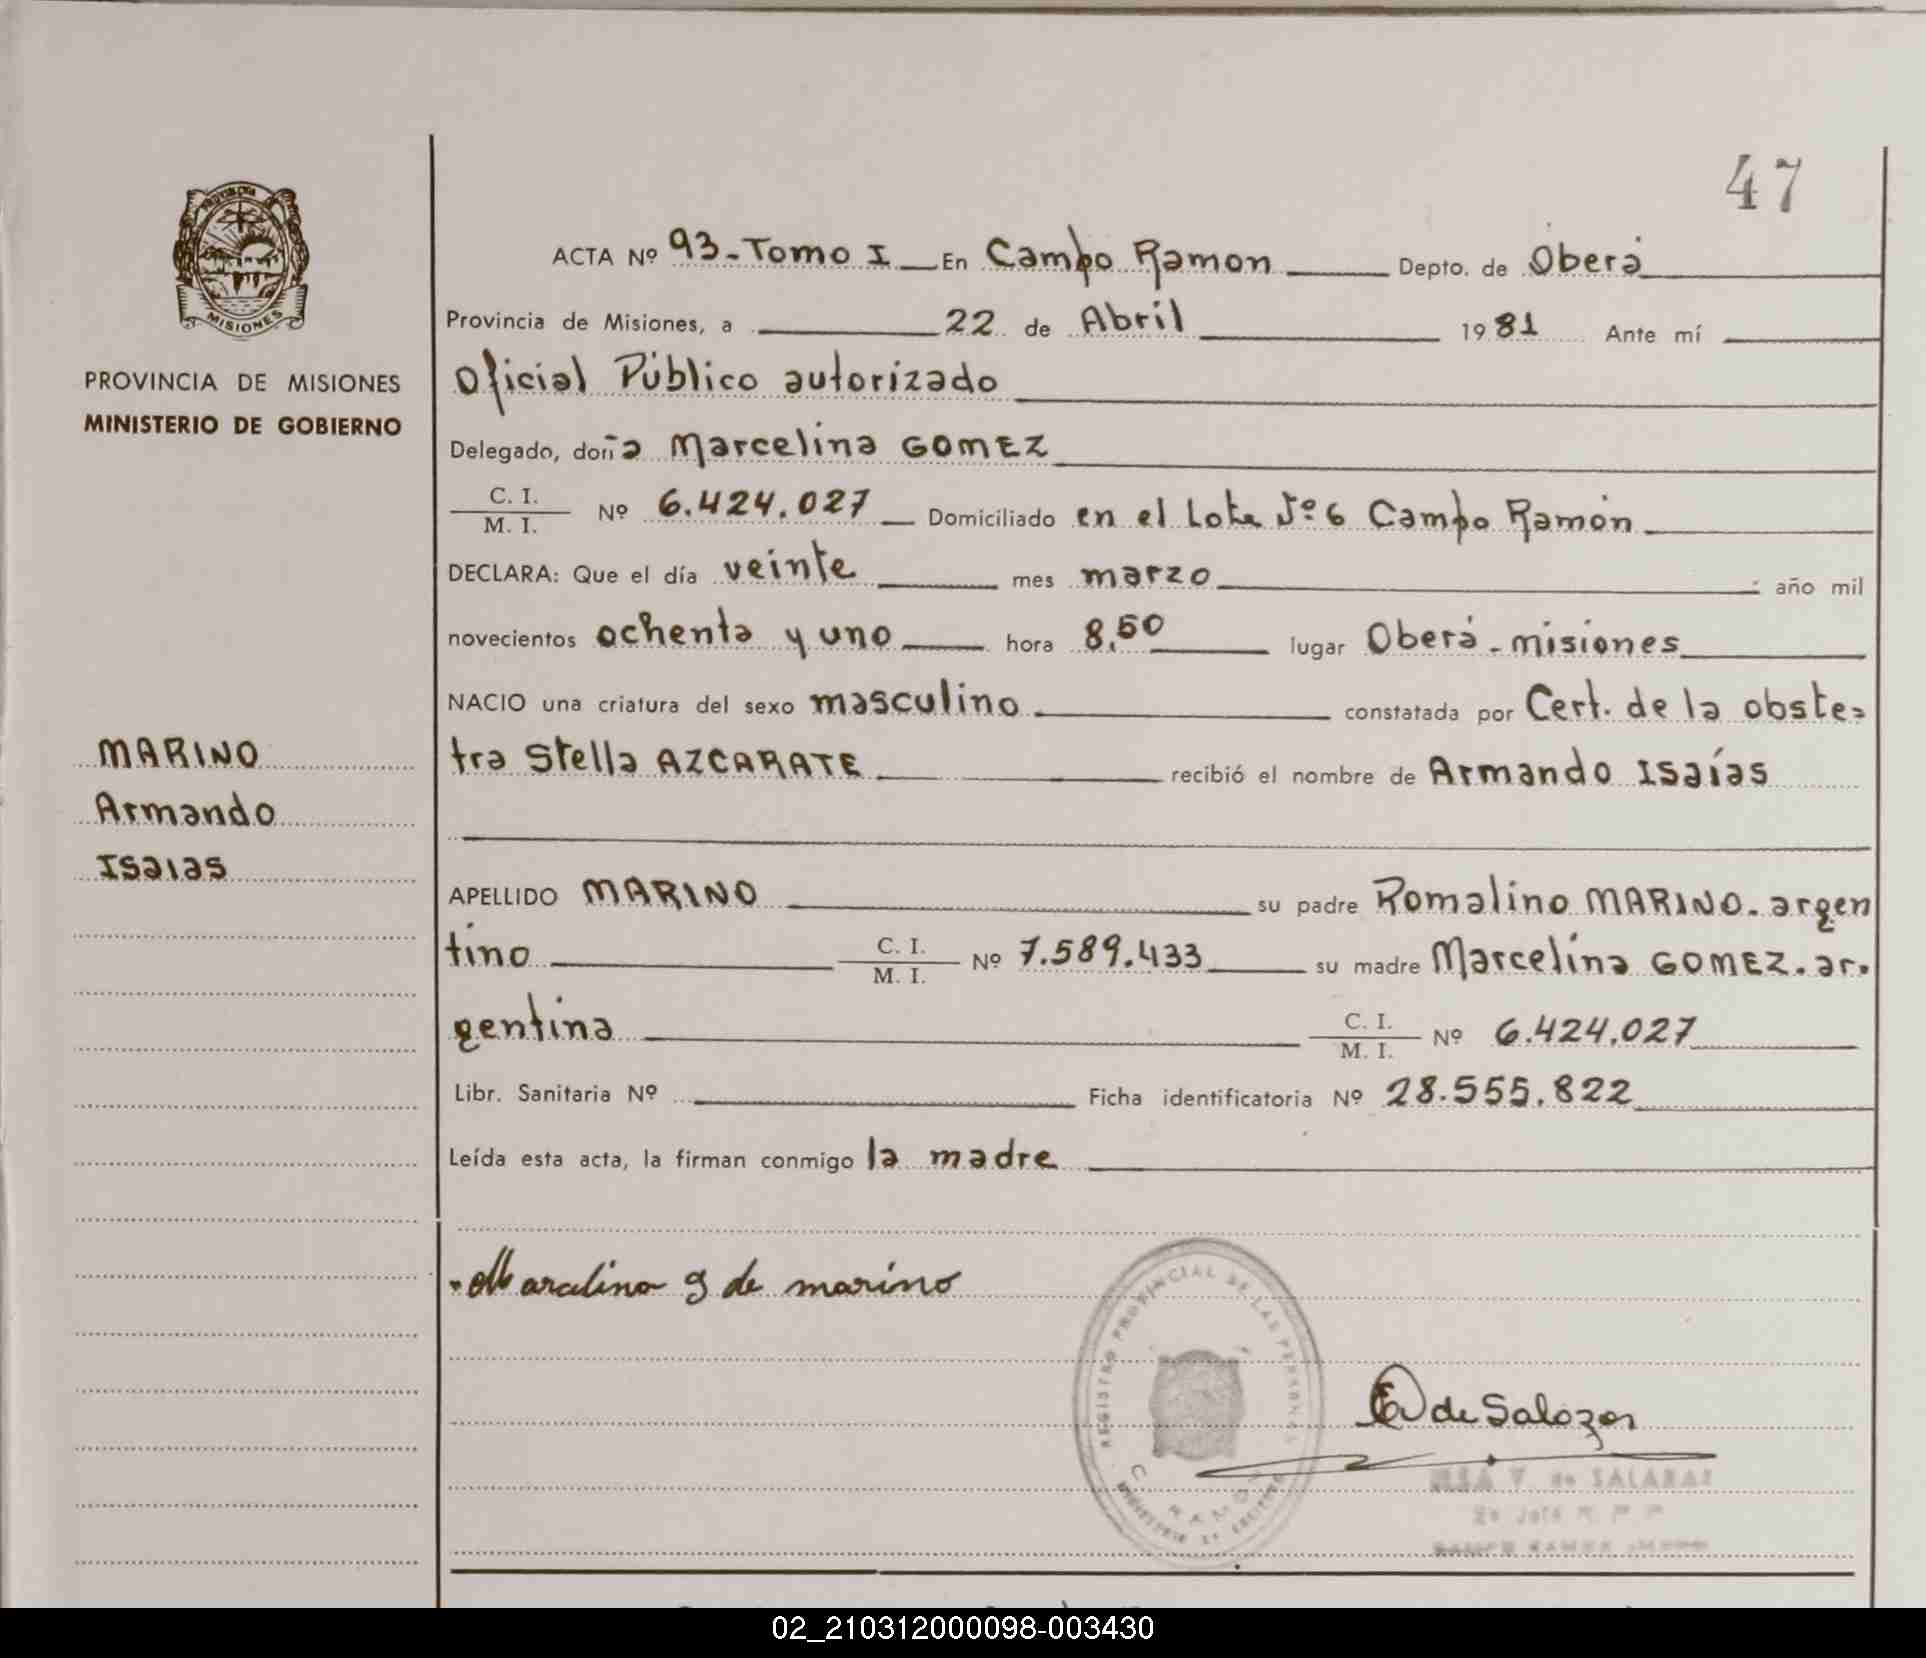 47
ACTA Nº 93-Tomo I En Campo Ramon Depto. de Oberá
Provincia de Misiones, a 22 de Abril 1981 Ante mí
PROVINCIA DE MISIONES
MINISTERIO DE GOBIERNO
MISIONES
Oficial Público autorizado
Delegado, doña Marcelina GOMEZ
C. I.
M. I. Nº 6.424.027 Domiciliado en el Lote Nº 6 Campo Ramón
DECLARA: Que el día veinte mes marzo año mil
novecientos ochenta y uno hora 8,50 lugar Oberá - misiones
NACIO una criatura del sexo masculino constatada por Cert. de la obste-
tra Stella AZCARATE recibió el nombre de Armando Isaías
MARINO
Armando
Isaias
APELLIDO MARINO su padre Romalino MARINO. argen
tino C. I.
M. I. Nº 7.589.433 su madre Marcelina GOMEZ. ar.
gentina C. I.
M. I. Nº 6.424.027
Libr. Sanitaria Nº Ficha identificatoria Nº 28.555.822
Leída esta acta, la firman conmigo la madre
Marcelina g de marino
REGISTRO PROVINCIAL DE LAS PERSONAS
C. RAMON
de Salazar
V. de SALAZAR
02_210312000098-003430